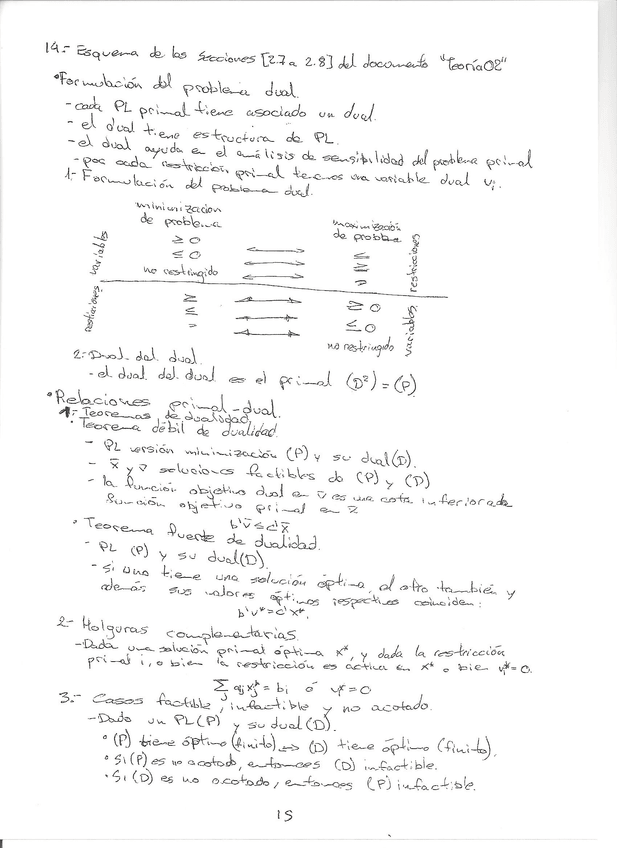 14.- Esquema de las secciones [2.7 a 2.8] del documento "Teoría02"
• Formulación del problema dual.
- cada PL primal tiene asociado un dual.
- el dual tiene estructura de PL.
- el dual ayuda en el análisis de sensibilidad del problema primal
- por cada restricción primal tenemos una variable dual vi.
1- Formulación del problema dual.
minimización de problema
maximización de problema
variables
≥ 0 ↔ ≤
≤ 0 ↔ ≥
no restringido ↔ =
restricciones
restricciones
≥ ↔ ≥ 0
≤ ↔ ≤ 0
= ↔ no restringido
variables
2.- Dual del dual.
- el dual del dual es el primal (D²) = (P)
• Relaciones primal-dual.
1.- Teoremas de dualidad.
• Teorema débil de dualidad.
- PL versión minimización (P) y su dual (D).
- x̄ y v̄ soluciones factibles de (P) y (D)
- la función objetivo dual en v̄ es una cota inferior a de
función objetivo primal en x̄
b'v̄ ≤ c'x̄
• Teorema fuerte de dualidad.
- PL (P) y su dual (D).
- si uno tiene una solución óptima, el otro también y
además sus valores óptimos respectivos coinciden:
b'v* = c'x*.
2- Holguras complementarias.
- Dada una solución primal óptima x*, y dada la restricción
primal i, o bien la restricción es activa en x* o bien vi* = 0.
∑j aij xj* = bi ó vi* = 0
3.- Casos factible, infactible y no acotado.
- Dado un PL (P) y su dual (D).
• (P) tiene óptimo (finito) ↔ (D) tiene óptimo (finito).
• Si (P) es no acotado, entonces (D) infactible.
• Si (D) es no acotado, entonces (P) infactible.
15